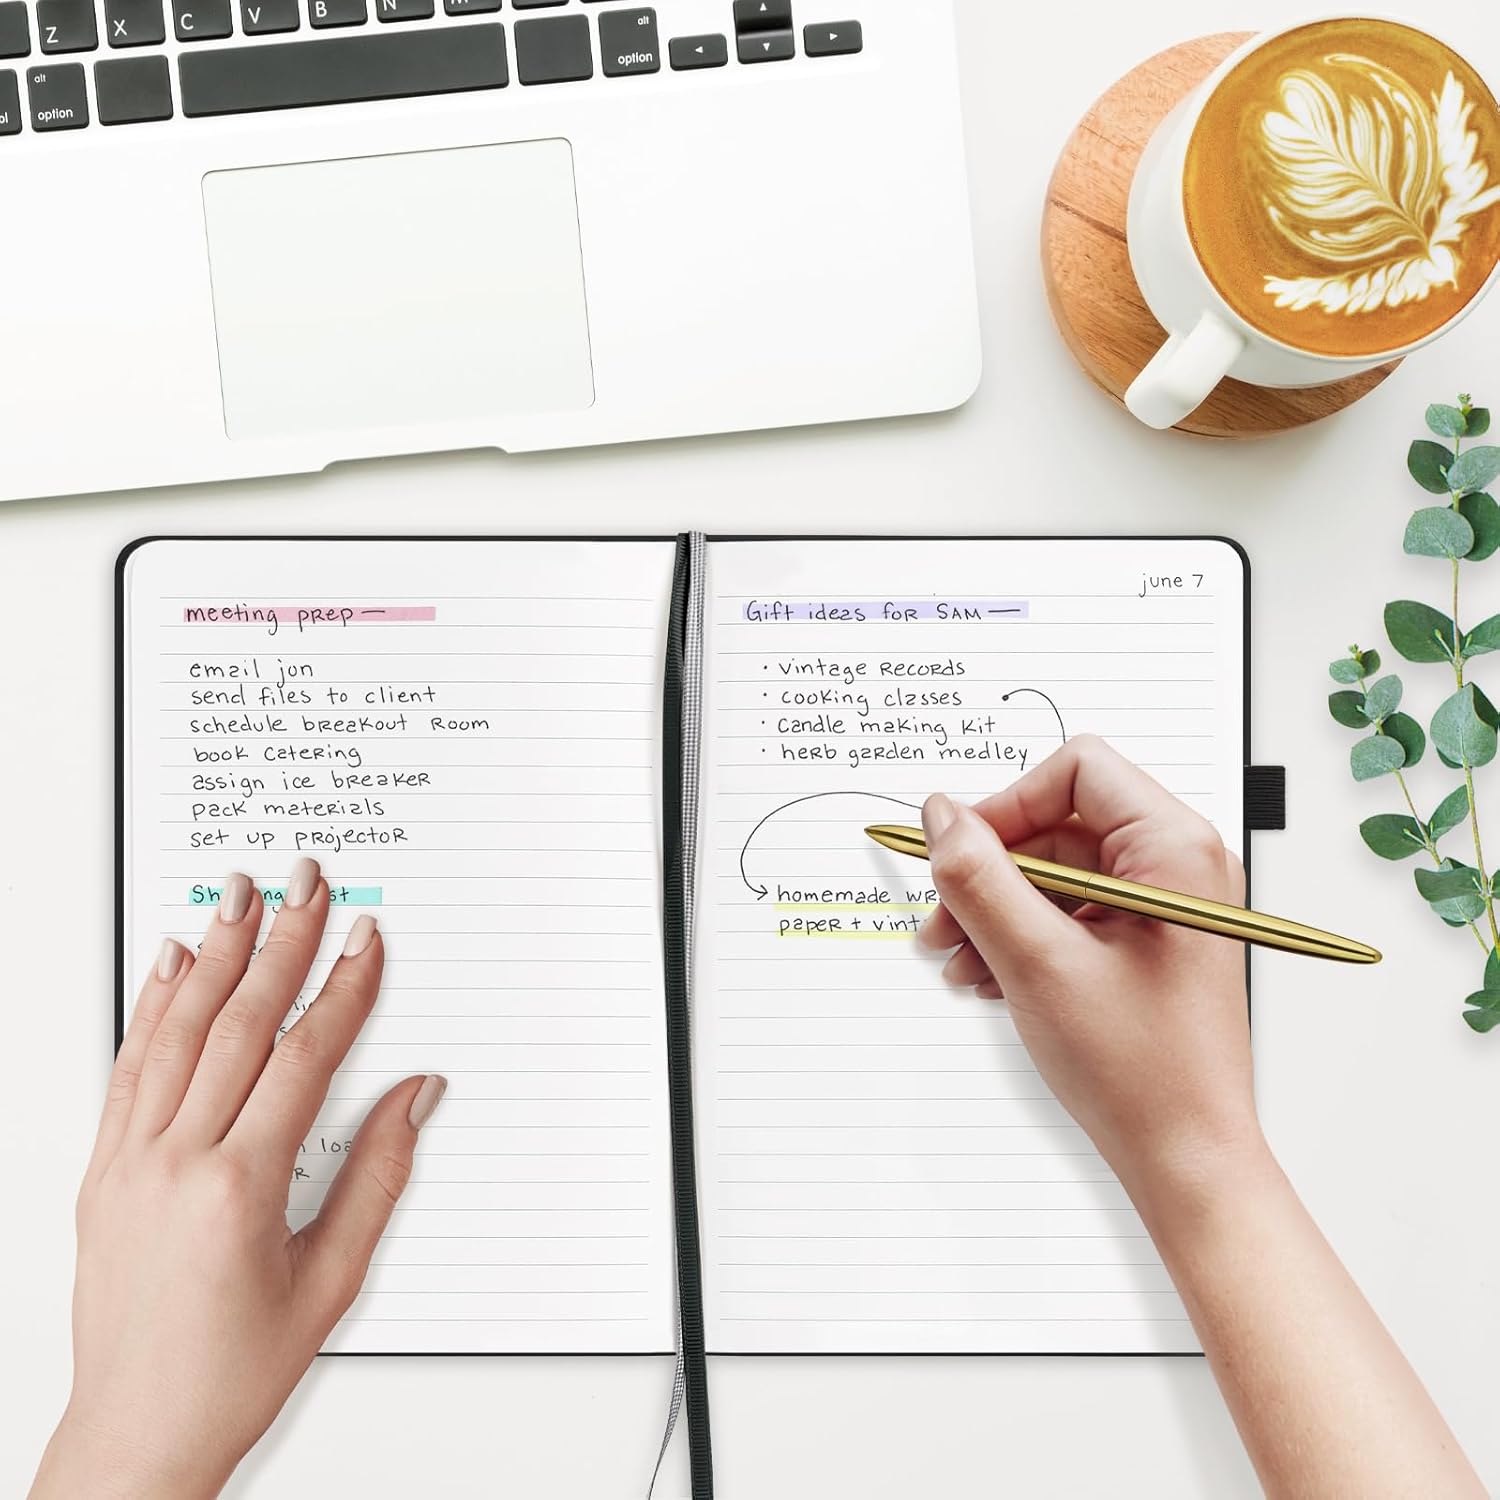 Z X C V B N M
alt alt
option option
meeting prep —
email jon
send files to client
schedule breakout room
book catering
assign ice breaker
pack materials
set up projector
june 7
Gift ideas for Sam —
· vintage records
· cooking classes
· candle making kit
· herb garden medley
homemade
paper +